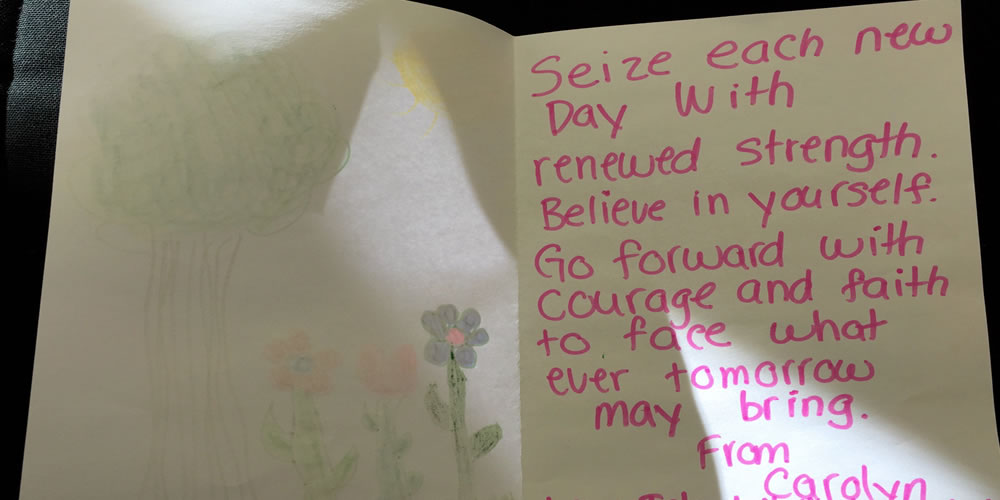 Seize each new
Day With
renewed strength.
Believe in yourself.
Go forward with
courage and faith
to face what
ever tomorrow
may bring.
From
Carolyn